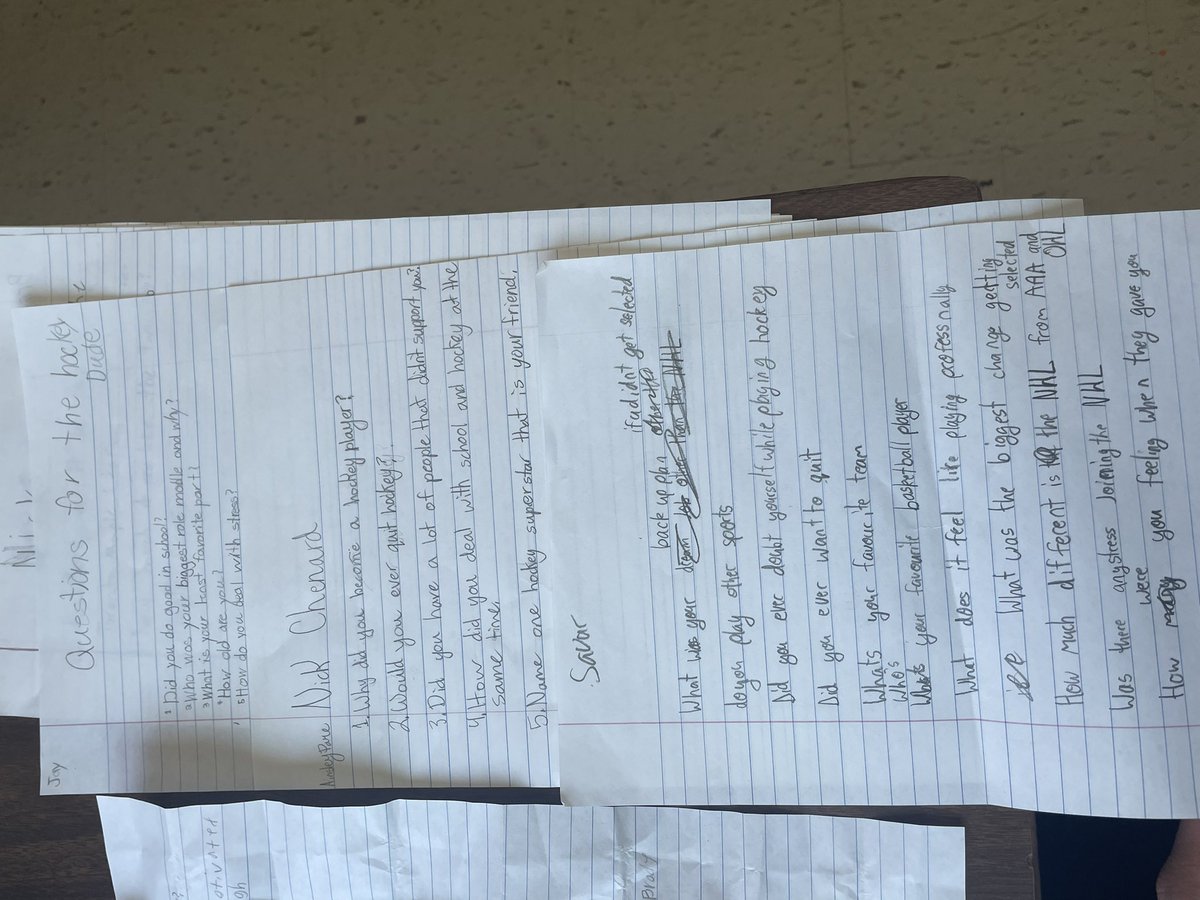 Jay
Questions for the hockey
Dude
1 Did you do good in school?
2 Who was your biggest role modle and why?
3 What is your least favorite part?
4 How old are you?
5 How do you deal with stress?
Nick Chenard
1. Why did you become a hockey player?
2. Would you ever quit hockey?
3. Did you have a lot of people that didnt support you?
4. How did you deal with school and hockey at the
same time.
5. Name one hockey superstar that is your friend.
Savar
if u didnt get selected
back up plan
What was your
do you play other sports
Did you ever doubt yourself while playing hockey
Did you ever want to quit
Whats your favourite team
Who's your favourite basketball player
What does it feel like playing professnally
What was the biggest change getting
selected
How much different is the NHL from AAA and
OHL
Was there any stress joining the NHL
How were you feeling when they gave you